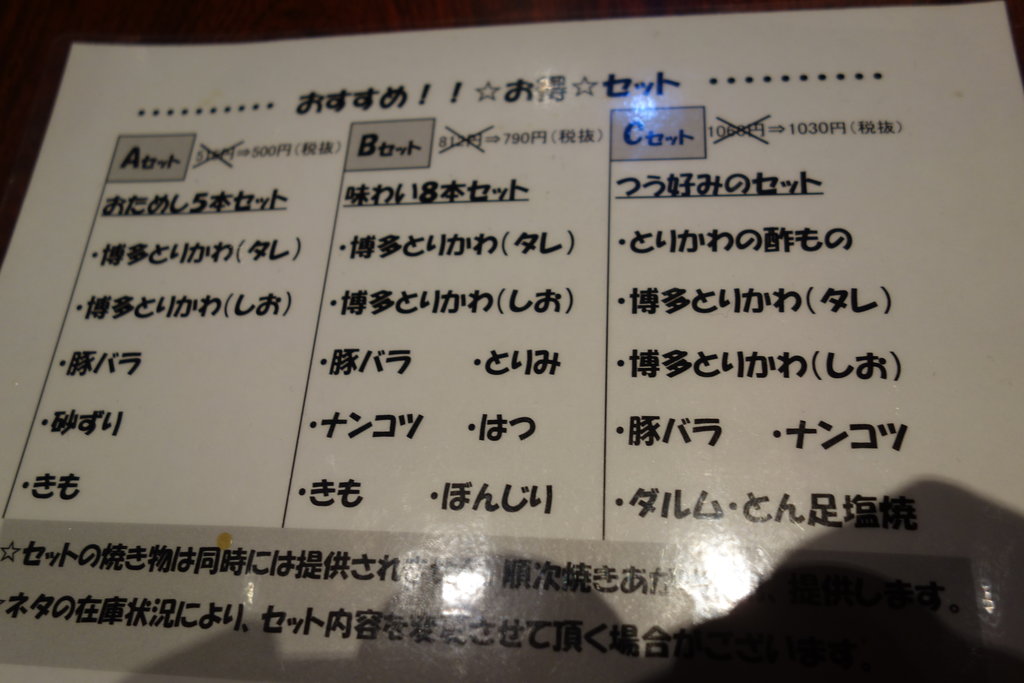 おすすめ！！☆お得☆セット
Aセット ⇒500円（税抜）
おためし5本セット
・博多とりかわ（タレ）
・博多とりかわ（しお）
・豚バラ
・砂ずり
・きも
Bセット ⇒790円（税抜）
味わい8本セット
・博多とりかわ（タレ）
・博多とりかわ（しお）
・豚バラ ・とりみ
・ナンコツ ・はつ
・きも ・ぼんじり
Cセット 1060円⇒1030円（税抜）
つう好みのセット
・とりかわの酢もの
・博多とりかわ（タレ）
・博多とりかわ（しお）
・豚バラ ・ナンコツ
・ダルム・とん足塩焼
☆セットの焼き物は同時には提供され 順次焼きあが 、提供します。
ネタの在庫状況により、セット内容を変更させて頂く場合がございます。